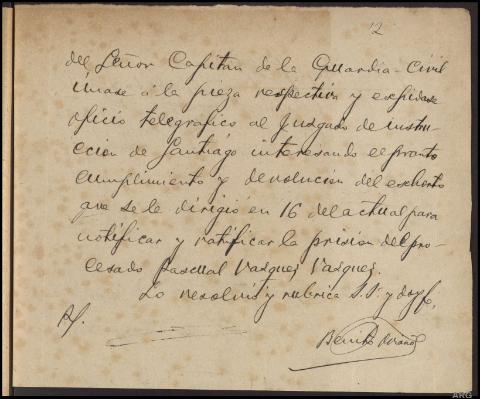 12
del Señor Capitan de la Guardia-Civil
únase á la pieza respectiva y expidase
oficio telegrafico al Juzgado de instru-
ccion de Santiago interesando el pronto
cumplimiento y devolucion del exhorto
que se le dirigió en 16 del actual para
notificar y ratificar la prision del pro-
cesado Pascual Vazquez Vazquez.
Lo resolvió y rubrica S.Sª y doy fe,
Benito
ARG